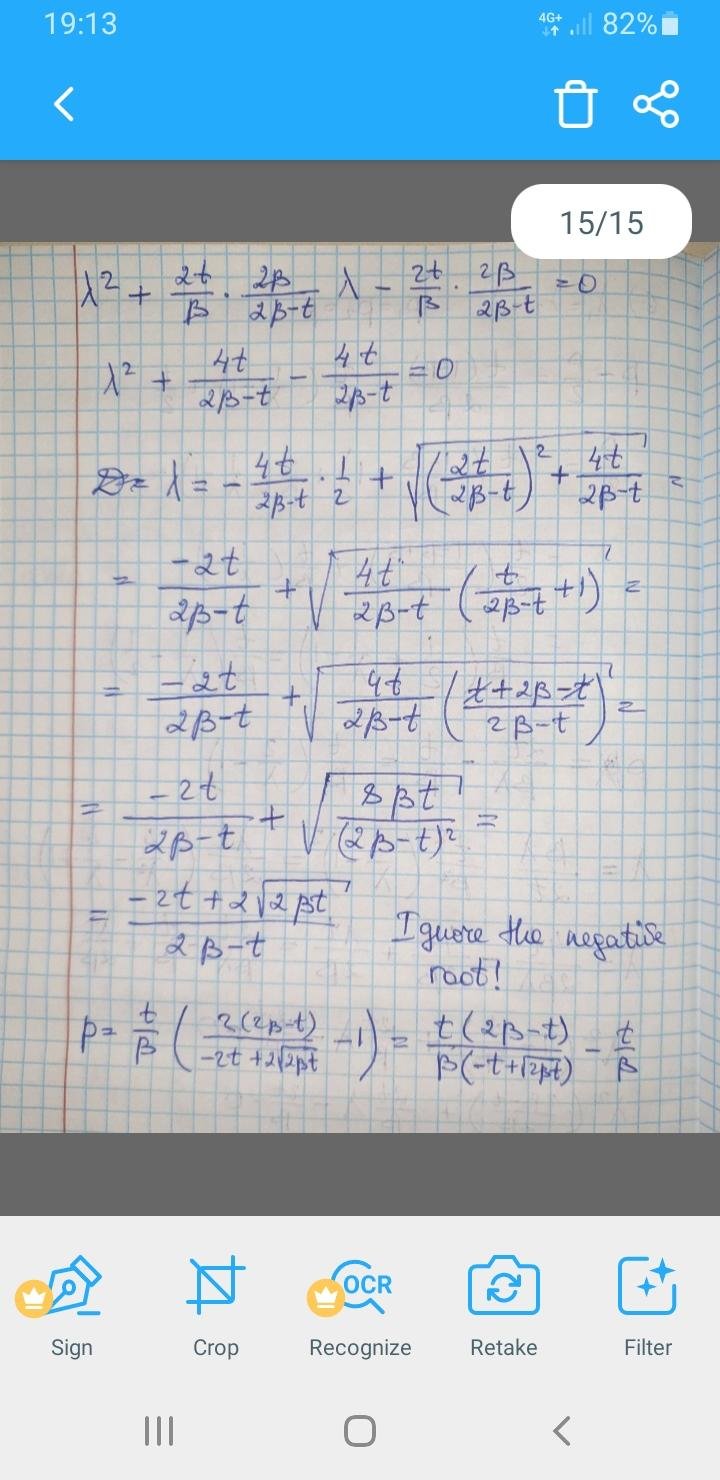 19:13 4G+ 82%
15/15
λ² + 2t/β · 2β/(2β-t) λ - 2t/β · 2β/(2β-t) = 0
λ² + 4t/(2β-t) - 4t/(2β-t) = 0
λ = - 4t/(2β-t) · 1/2 + √((2t/(2β-t))² + 4t/(2β-t)) =
= -2t/(2β-t) + √(4t/(2β-t) (t/(2β-t) + 1)) =
= -2t/(2β-t) + √(4t/(2β-t) ((t+2β-t)/(2β-t))) =
= -2t/(2β-t) + √(8βt/(2β-t)²) =
= (-2t + 2√(2βt))/(2β-t)
Ignore the negative
root!
p = t/β (2(2β-t)/(-2t+2√(2βt)) - 1) = t(2β-t)/(β(-t+√(2βt))) - t/β
OCR
Sign Crop Recognize Retake Filter